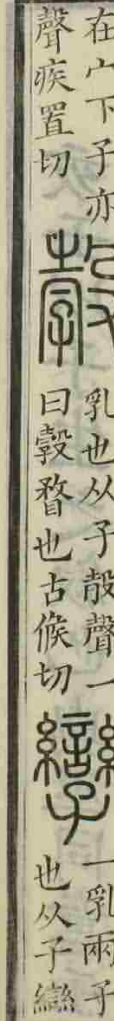 在宀下子亦
聲疾置切
㝅
乳也从子㱿聲一
曰㝅瞀也古候切
孿
一乳兩子
也从子䜌